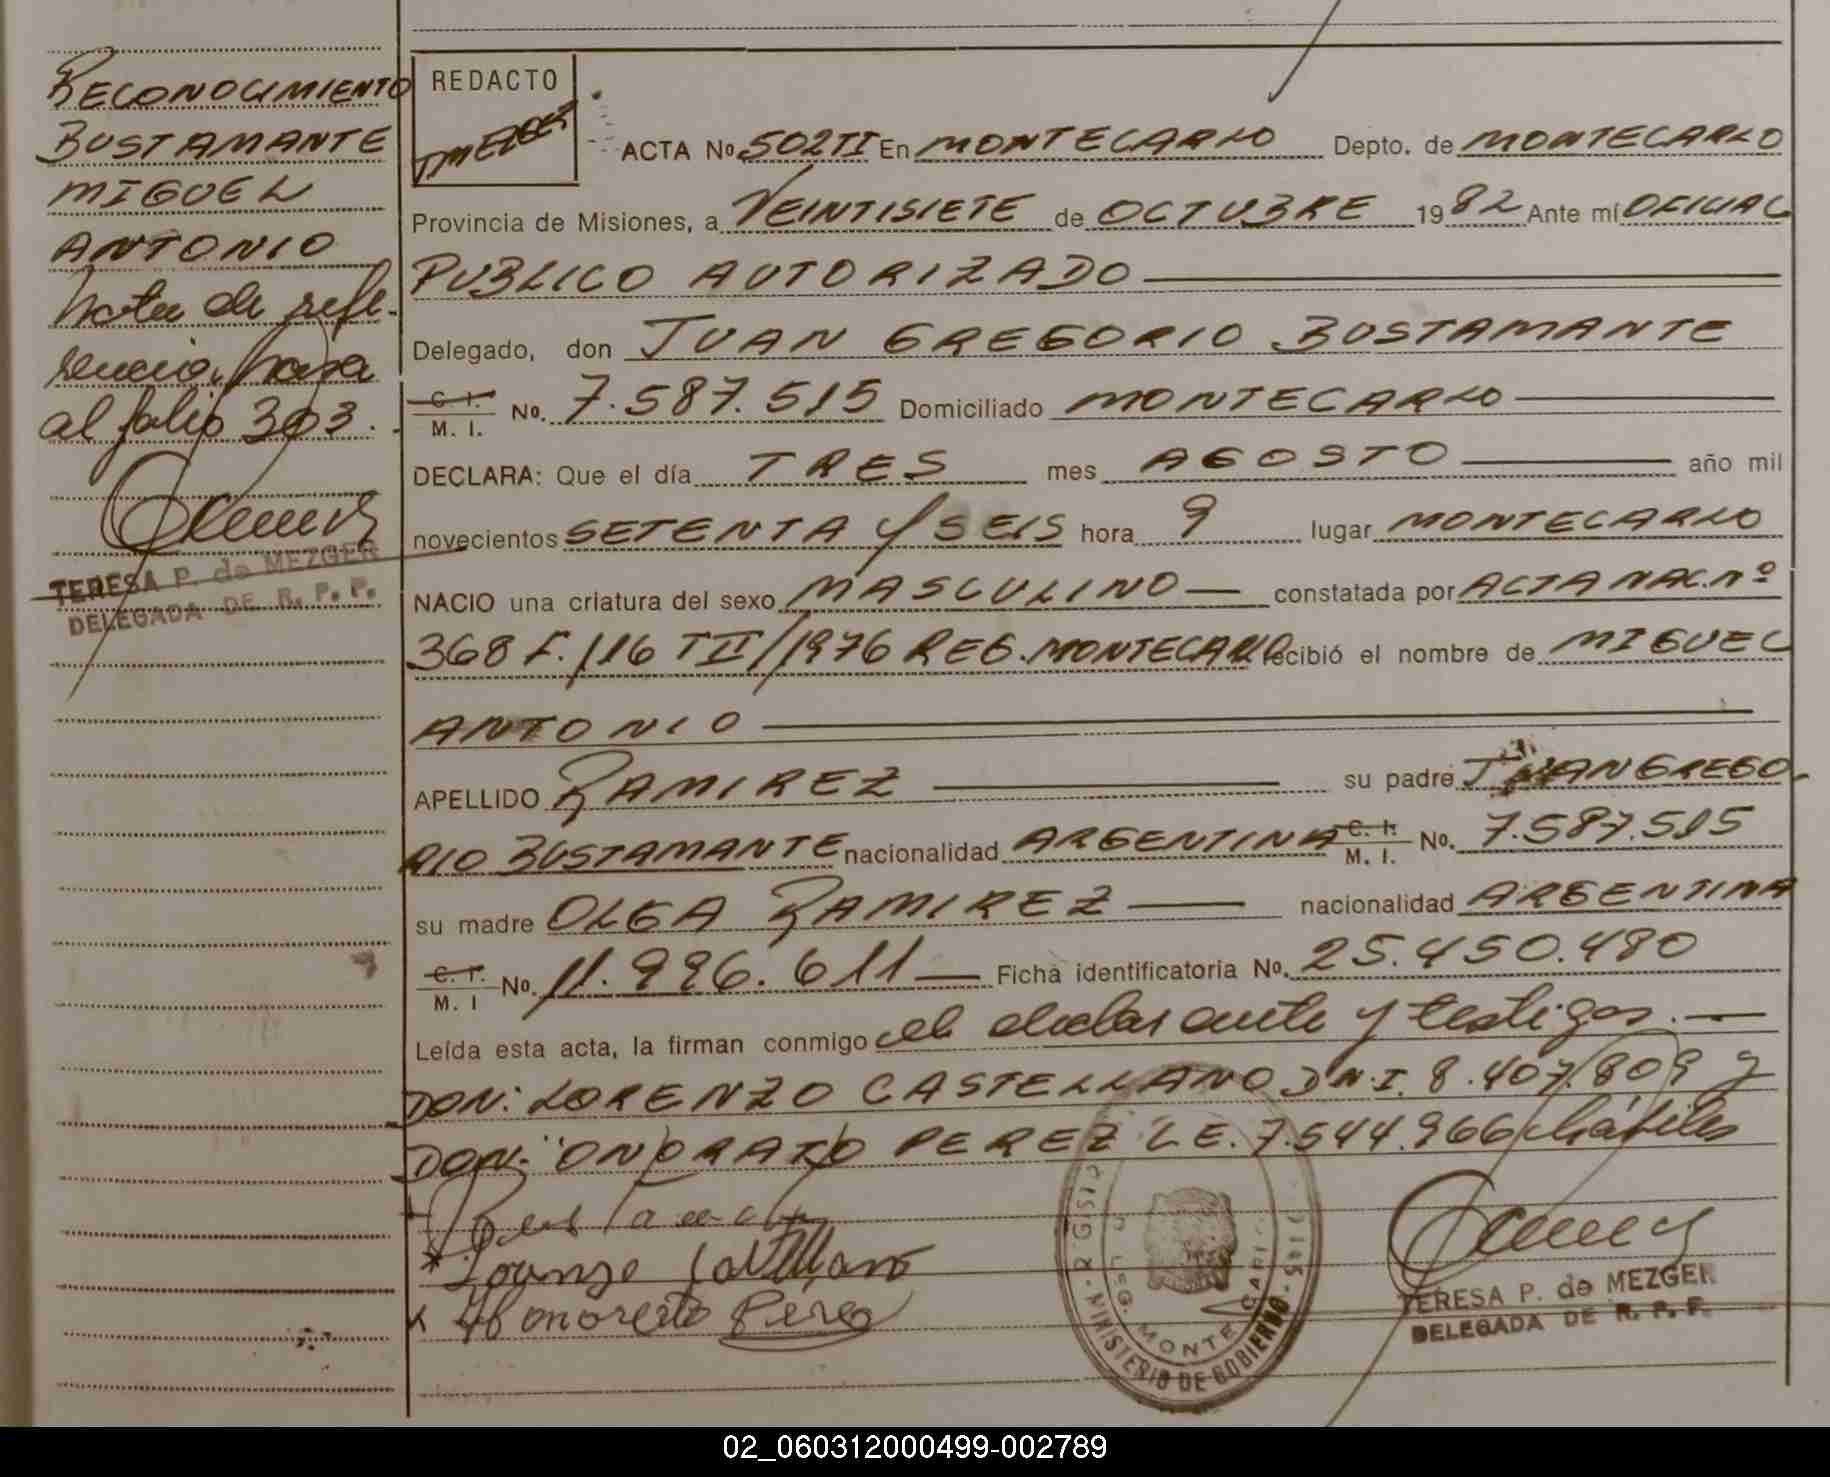 RECONOCIMIENTO
BUSTAMANTE
MIGUEL
ANTONIO
Nota de refe-
rencia pasa
al folio 303.
TERESA P. de MEZGER
DELEGADA DE R. P. P.
REDACTO
ACTA No. 502 TI En MONTECARLO Depto. de MONTECARLO
Provincia de Misiones, a VEINTISIETE de OCTUBRE 1982 Ante mí OFICIAL
PUBLICO AUTORIZADO
Delegado, don JUAN GREGORIO BUSTAMANTE
C. I. M. I. No. 7.587.515 Domiciliado MONTECARLO
DECLARA: Que el día TRES mes AGOSTO año mil
novecientos SETENTA Y SEIS hora 9 lugar MONTECARLO
NACIO una criatura del sexo MASCULINO constatada por ACTA NAC. Nº
368 F. 116 TII/1976 REG. MONTECARLO recibió el nombre de MIGUEL
ANTONIO
APELLIDO RAMIREZ su padre JUAN GREGO-
RIO BUSTAMANTE nacionalidad ARGENTINA C. I. M. I. No. 7.587.515
su madre OLGA RAMIREZ nacionalidad ARGENTINA
C. I. M. I No. 11.996.611 Ficha identificatoria No. 25.450.480
Leída esta acta, la firman conmigo el declarante y testigos.
DON: LORENZO CASTELLANO D.N.I. 8.407.809 y
DON: ONORATO PEREZ L.E. 7.544.966 hábiles
Lorenzo Castellano
Honorato Perez
MINISTERIO DE GOBIERNO
TERESA P. de MEZGER
DELEGADA DE R. P. P.
02_060312000499-002789